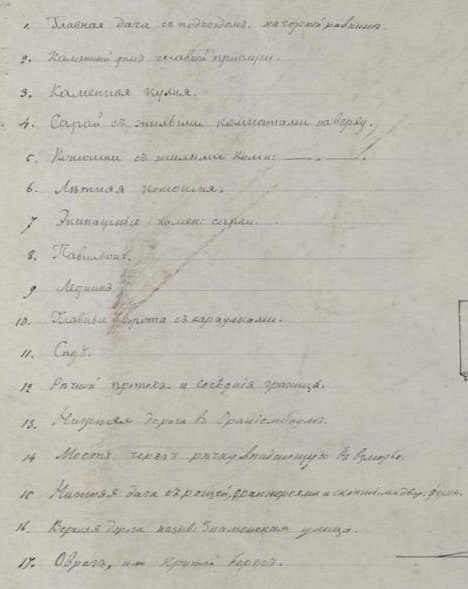 1. Главная дача съ подъездомъ на горней равнинѣ.
2. Каменный домъ главной прислуги.
3. Каменная кухня.
4. Сарай съ жилыми комнатами наверху.
5. Конюшни съ жилыми комн: — " — .
6. Лѣтняя конюшня.
7 Экипажные камен: сараи.
8. Павильонъ.
9 Ледникъ.
10. Главные ворота съ караулками.
11. Садъ.
12 Рѣчной протокъ и соседнія граница.
13. Нижняя дорога въ Ораніенбаумъ.
14 Мостъ черезъ рѣчку впадающую въ взморье.
15 Нижняя дача съ рощей, оранжереями и скотнымъ двор: ферма.
16. Верхняя дорога назыв: Знаменская улица.
17. Оврагъ, или крутой берегъ.